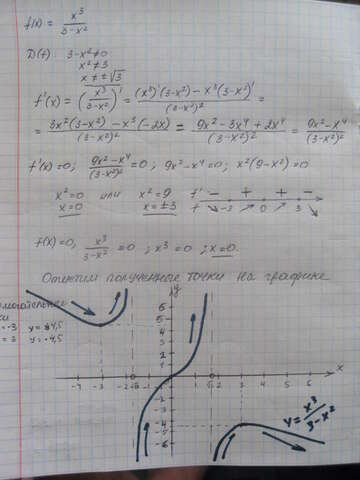 f(x) = x³/(3-x²)
D(f) 3-x²≠0
x²≠3
x≠±√3
f'(x) = (x³/(3-x²))' = ((x³)'(3-x²) - x³(3-x²)')/(3-x²)² =
= (3x²(3-x²) - x³(-2x))/(3-x²)² = (9x²-3x⁴+2x⁴)/(3-x²)² = (9x²-x⁴)/(3-x²)²
f'(x)=0; (9x²-x⁴)/(3-x²)² = 0; 9x²-x⁴=0; x²(9-x²)=0
x²=0 или x²=9 f' - + + -
x=0 x=±3 f ↘ -3 ↗ 0 ↗ 3 ↘
f(x)=0, x³/(3-x²) = 0; x³=0; x=0.
Отметим полученные точки на графике
= -3 y=4,5
= 3 y=-4,5
y
6
5
4
3
2
1
-4 -3 -2 -1 0 1 2 3 4 5 6 x
-1
-2
-3
-4
-5
-6
y = x³/(3-x²)